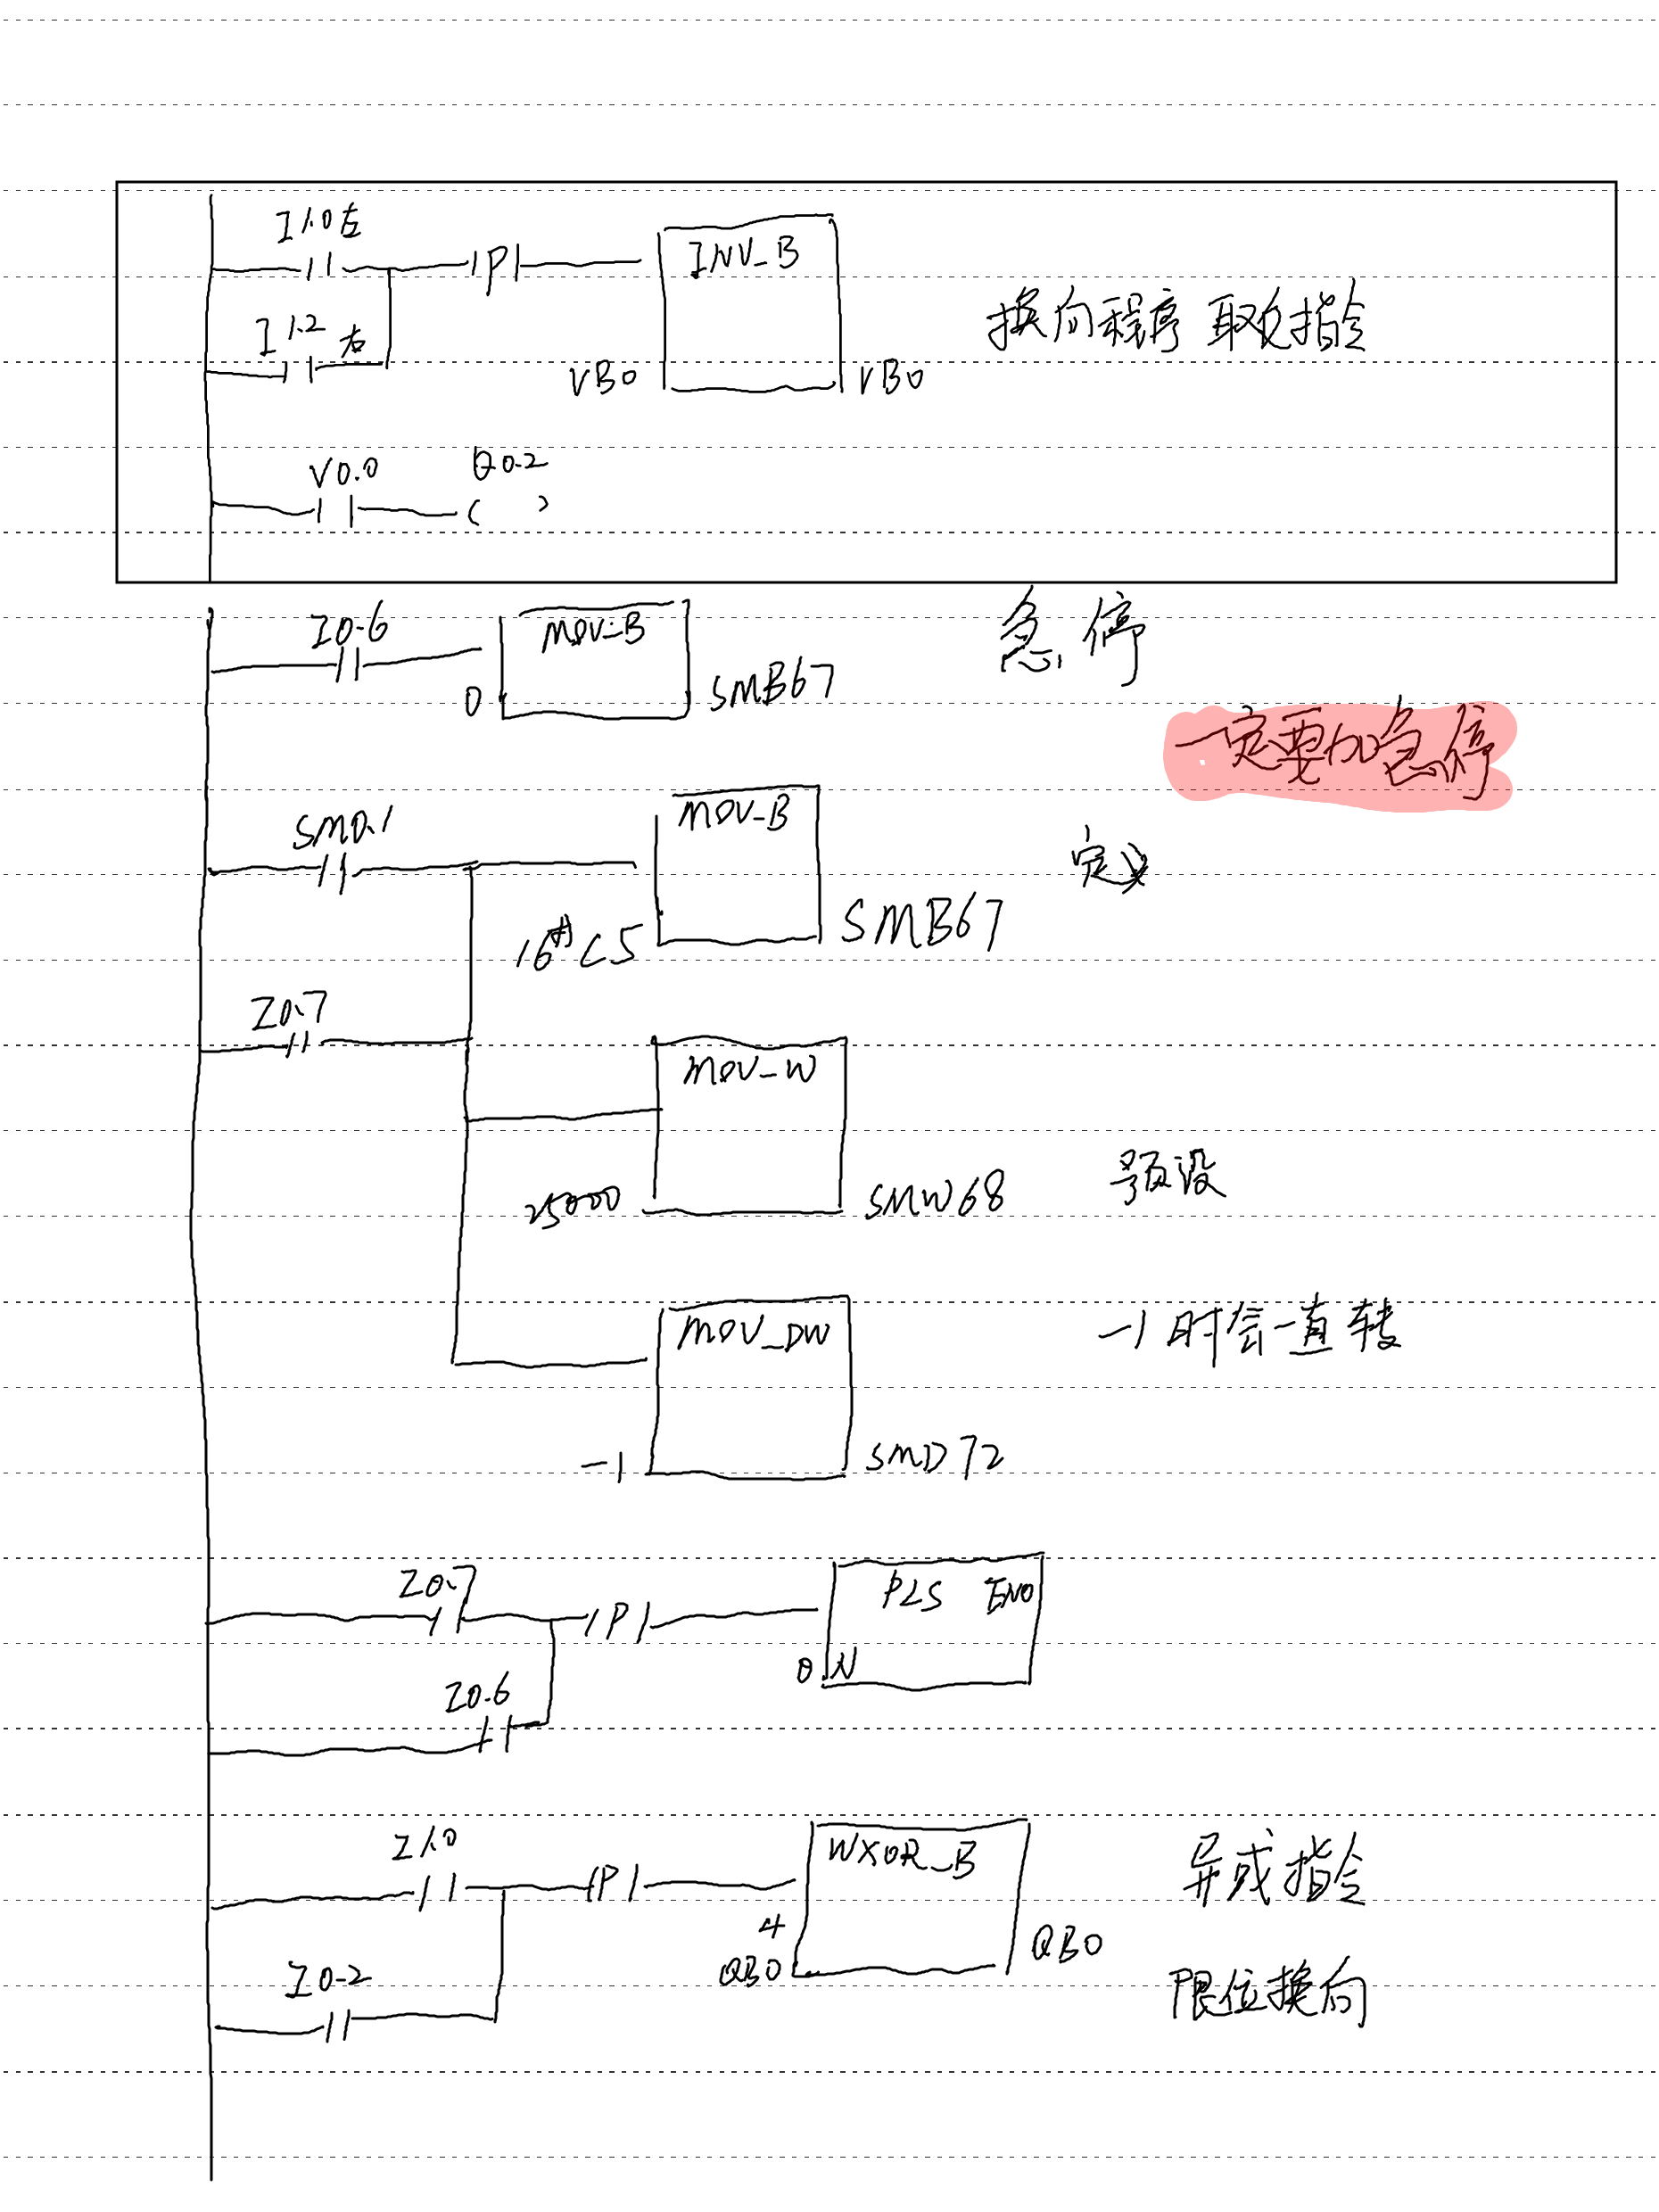 I1.0 左
P
INV_B
I1.2 右
换向程序 取反指令
VB0
VB0
V0.0
Q0.2
I0.6
MOV_B
急停
0
SMB67
一定要加急停
SM0.1
MOV_B
定义
16#C5
SMB67
I0.7
MOV_W
25000
SMW68
预设
MOV_DW
-1时会一直转
-1
SMD72
I0.7
P
PLS ENO
0 N
I0.6
I1.0
P
WXOR_B
异或指令
4
QB0
QB0
I0.2
限位换向